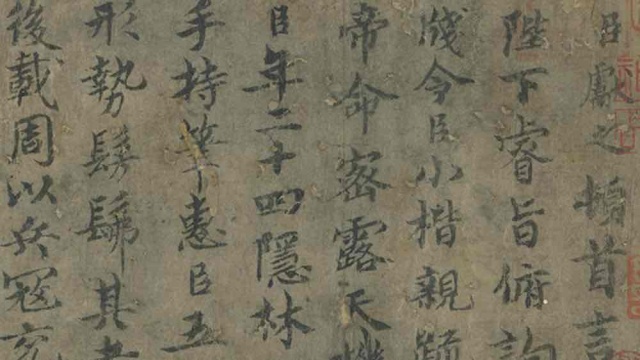 臣獻之首言
陛下睿旨俯詢
牋令臣小楷親疏
帝命密露天機
臣年二十四隱林
手持筆惠臣五
形勢髣髴其書
後載周以兵寇充